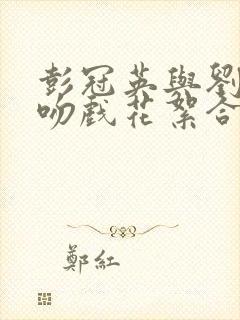 彭冠英與劉
吻戲花絮合
鄭紅